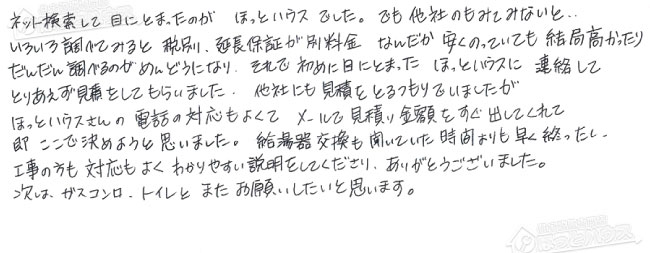 ネット検索して目にとまったのが ほっとハウスでした。でも他社のもみてみないと‥
いろいろ調べてみると 税別、延長保証が別料金 なんだか安くのっていても結局高かったり
だんだん調べるのがめんどうになり、それで初めに目にとまった ほっとハウスに 連絡して
とりあえず見積をしてもらいました。他社にも見積をとるつもりでいましたが
ほっとハウスさんの電話の対応もよくて メールで見積り金額をすぐ出してくれて
即ここで決めようと思いました。給湯器交換も聞いていた時間よりも早く終ったし、
工事の方も対応もよくわかりやすい説明をしてくださり、ありがとうございました。
次は、ガスコンロ、トイレと またお願いしたいと思います。
ほっとハウス